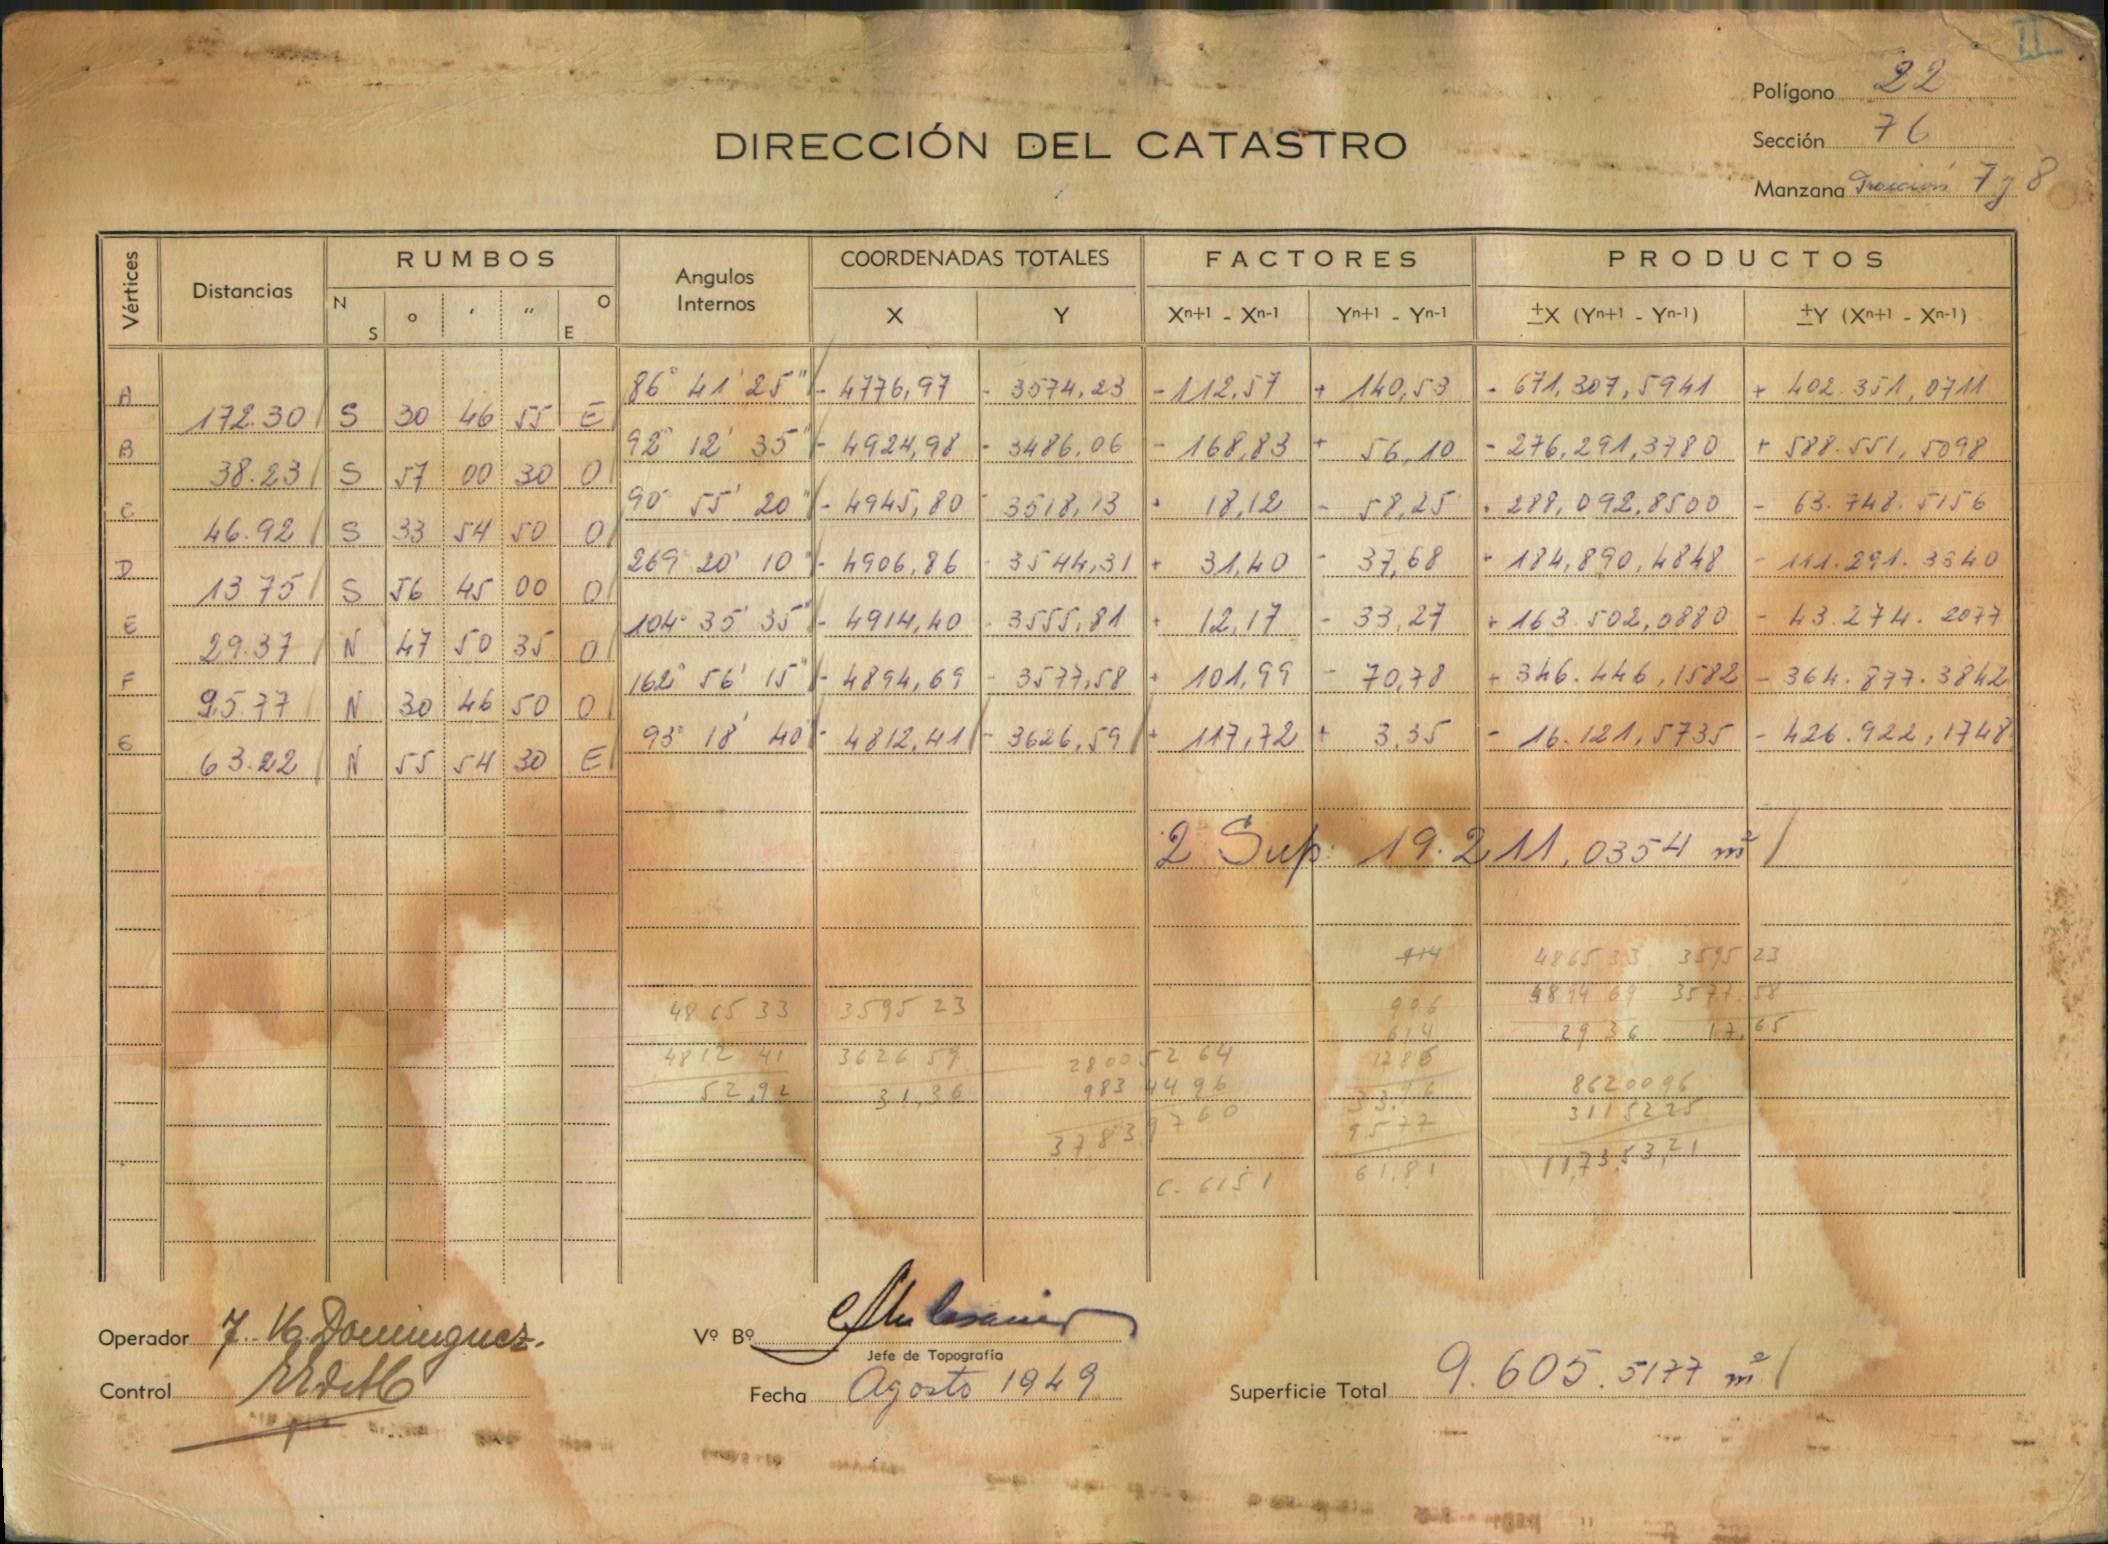 II
Polígono 22
DIRECCIÓN DEL CATASTRO
Sección 76
Manzana Fracción 7 y 8
Vértices Distancias RUMBOS Angulos Internos COORDENADAS TOTALES FACTORES PRODUCTOS
N S ° ' " O E X Y Xn+1 - Xn-1 Yn+1 - Yn-1 ±X (Yn+1 - Yn-1) ±Y (Xn+1 - Xn-1)
A 86° 41' 25" - 4776,97 - 3574,23 - 112,57 + 140,53 - 671,307,5941 + 402.351,0711
172.30 S 30 46 55 E
B 92° 12' 35" - 4924,98 - 3486.06 - 168,83 + 56,10 - 276,291,3780 + 588.551,5098
38.23 S 57 00 30 O
C 90° 55' 20" - 4945,80 - 3518,13 + 18,12 - 58,25 + 288,092,8500 - 63.748.5156
46.92 S 33 54 50 O
D 269° 20' 10" - 4906,86 - 3544,31 + 31,40 - 37,68 + 184,890,4848 - 111.291.3340
13 75 S 56 45 00 O
E 104° 35' 35" - 4914,40 - 3555,81 + 12,17 - 33,27 + 163.502,0880 - 43.274.2077
29.37 N 47 50 35 O
F 162° 56' 15" - 4894,69 - 3577,58 + 101,99 - 70,78 + 346.446,1582 - 364.877.3842
95.77 N 30 46 50 O
G 93° 18' 40" - 4812,41 - 3626,59 + 117,72 + 3,35 - 16.121,5735 - 426.922,1748
63.22 N 55 54 30 E
2 Sup: 19.211,0354 m²
414 4865 33 3595 23
4894 69 3577 58
4865 33 3595 23 996
614 29 36 17,65
4812 41 3626 59 280052 64 1786
52,92 31,36 983 4496 8620096
3115225
378397 60 9577
61,81 11,735321
C. 6151
Operador Dominguez.
Vº Bº
Jefe de Topografía
Control
Fecha Agosto 1949
Superficie Total 9.605.5177 m²